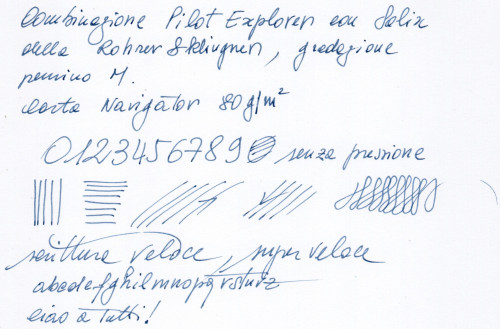 Combinazione Pilot Explorer con Salix
della Rohrer & Klingner, gradazione
pennino M.
Carta Navigator 80 g/m²
0123456789 senza pressione
scrittura veloce, super veloce
abcdefghilmnopqrstuvz
ciao a tutti!